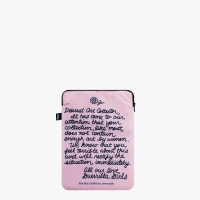 Dearest Art Collector,
It has come to our
attention that your
collection, like most,
does not contain
enough art by women.
We know that you
feel terrible about this
and will rectify the
situation immediately.
All our love,
Guerrilla Girls